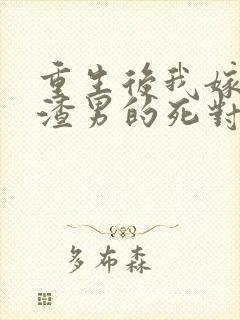 重生後我嫁
渣男的死對
多布森